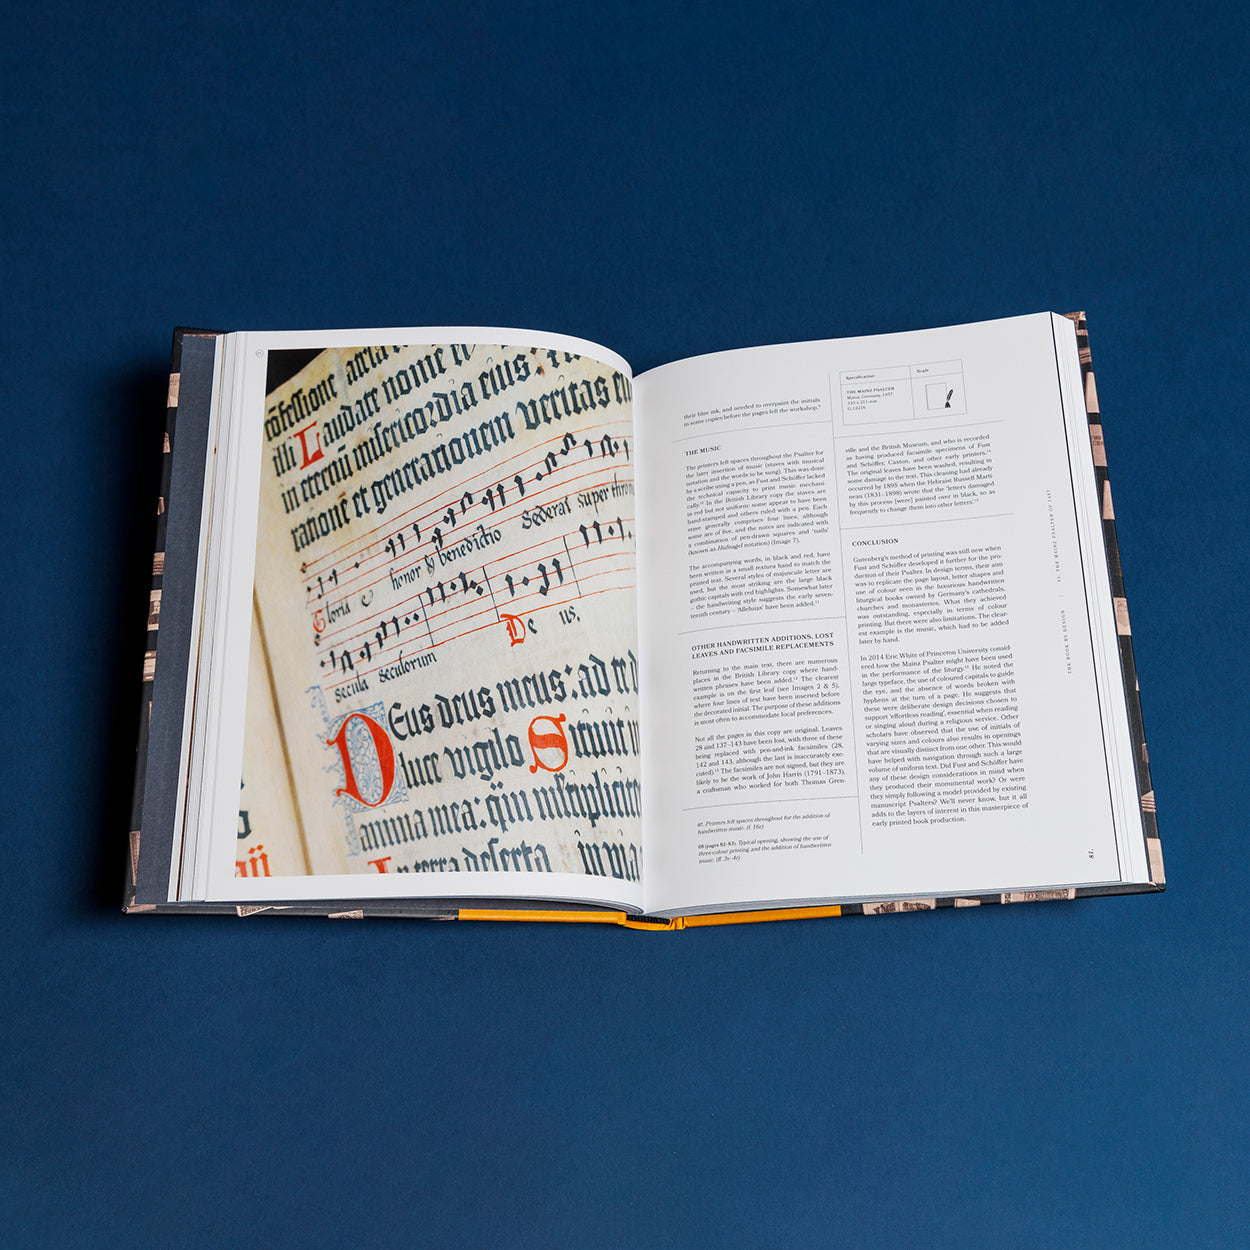 cōfessione
Laudate nomē
in eternū misericordia eius:
ratione et generationem veritas
honor & benedictio
Sederat super
Gloria
secula seculorum
De us,
Deus deus meus: ad te
luce vigilo Sitiuit in
anima mea: qm mltipliciter
In terra deserta
their blue ink, and needed to overpaint the initials
in some copies before the pages left the workshop.⁹
THE MUSIC
The printers left spaces throughout the Psalter for
the later insertion of music (staves with musical
notation and the words to be sung). This was done
by a scribe using a pen, as Fust and Schöffer lacked
the technical capacity to print music mechani-
cally.¹⁰ In the British Library copy the staves are
in red but not uniform: some appear to have been
hand-stamped and others ruled with a pen. Each
stave generally comprises four lines, although
some are of five, and the notes are indicated with
a combination of pen-drawn squares and 'nails'
(known as Hufnagel notation) (Image 7).
The accompanying words, in black and red, have
been written in a small textura hand to match the
printed text. Several styles of majuscule letter are
used, but the most striking are the large black
gothic capitals with red highlights. Somewhat later
– the handwriting style suggests the early seven-
teenth century – 'Alleluias' have been added.¹¹
OTHER HANDWRITTEN ADDITIONS, LOST
LEAVES AND FACSIMILE REPLACEMENTS
Returning to the main text, there are numerous
places in the British Library copy where hand-
written phrases have been added.¹² The clearest
example is on the first leaf (see Images 2 & 5),
where four lines of text have been inserted before
the decorated initial. The purpose of these additions
is most often to accommodate local preferences.
Not all the pages in this copy are original. Leaves
28 and 137–143 have been lost, with three of these
being replaced with pen-and-ink facsimiles (28,
142 and 143, although the last is inaccurately exe-
cuted).¹³ The facsimiles are not signed, but they are
likely to be the work of John Harris (1791–1873),
a craftsman who worked for both Thomas Gren-
07. Printers left spaces throughout for the addition of
handwritten music. (f. 16r)
08 (pages 82–83). Typical opening, showing the use of
three-colour printing and the addition of handwritten
music. (ff. 3v–4r)
Specification
Scale
THE MAINZ PSALTER
Mainz, Germany, 1457
G.12216
ville and the British Museum, and who is recorded
as having produced facsimile specimens of Fust
and Schöffer, Caxton, and other early printers.¹⁴
The original leaves have been washed, resulting in
some damage to the text. This cleaning had already
occurred by 1895 when the Hebraist Russell Marti-
neau (1831–1898) wrote that the 'letters damaged
by this process [were] painted over in black, so as
frequently to change them into other letters'.¹⁵
CONCLUSION
Gutenberg's method of printing was still new when
Fust and Schöffer developed it further for the pro-
duction of their Psalter. In design terms, their aim
was to replicate the page layout, letter shapes and
use of colour seen in the luxurious handwritten
liturgical books owned by Germany's cathedrals,
churches and monasteries. What they achieved
was outstanding, especially in terms of colour
printing. But there were also limitations. The clear-
est example is the music, which had to be added
later by hand.
In 2014 Eric White of Princeton University consid-
ered how the Mainz Psalter might have been used
in the performance of the liturgy.¹⁶ He noted the
large typeface, the use of coloured capitals to guide
the eye, and the absence of words broken with
hyphens at the turn of a page. He suggests that
these were deliberate design decisions chosen to
support 'effortless reading', essential when reading
or singing aloud during a religious service. Other
scholars have observed that the use of initials of
varying sizes and colours also results in openings
that are visually distinct from one other. This would
have helped with navigation through such a large
volume of uniform text. Did Fust and Schöffer have
any of these design considerations in mind when
they produced their monumental work? Or were
they simply following a model provided by existing
manuscript Psalters? We'll never know, but it all
adds to the layers of interest in this masterpiece of
early printed book production.
THE BOOK BY DESIGN / VI. THE MAINZ PSALTER OF 1457
81.